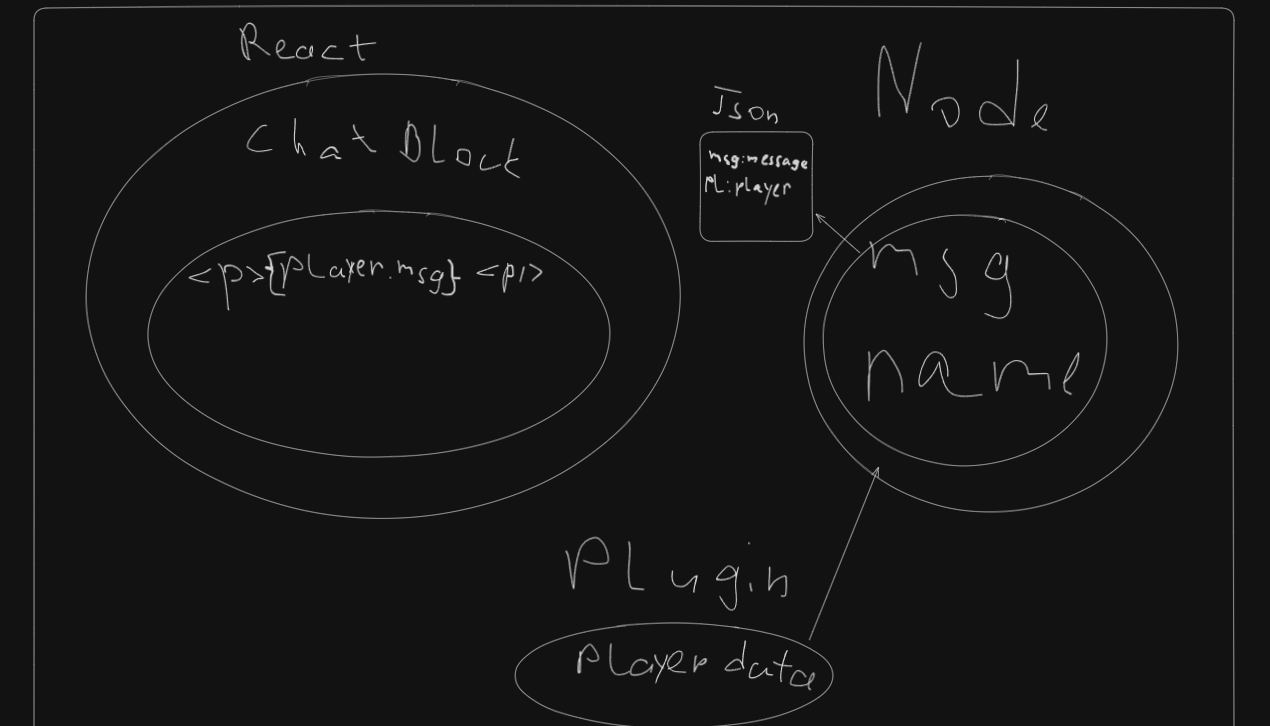 React
Chat Block
<p>{player.msg} <p1>
Json
msg:message
PL:player
Node
msg
name
Plugin
Player data